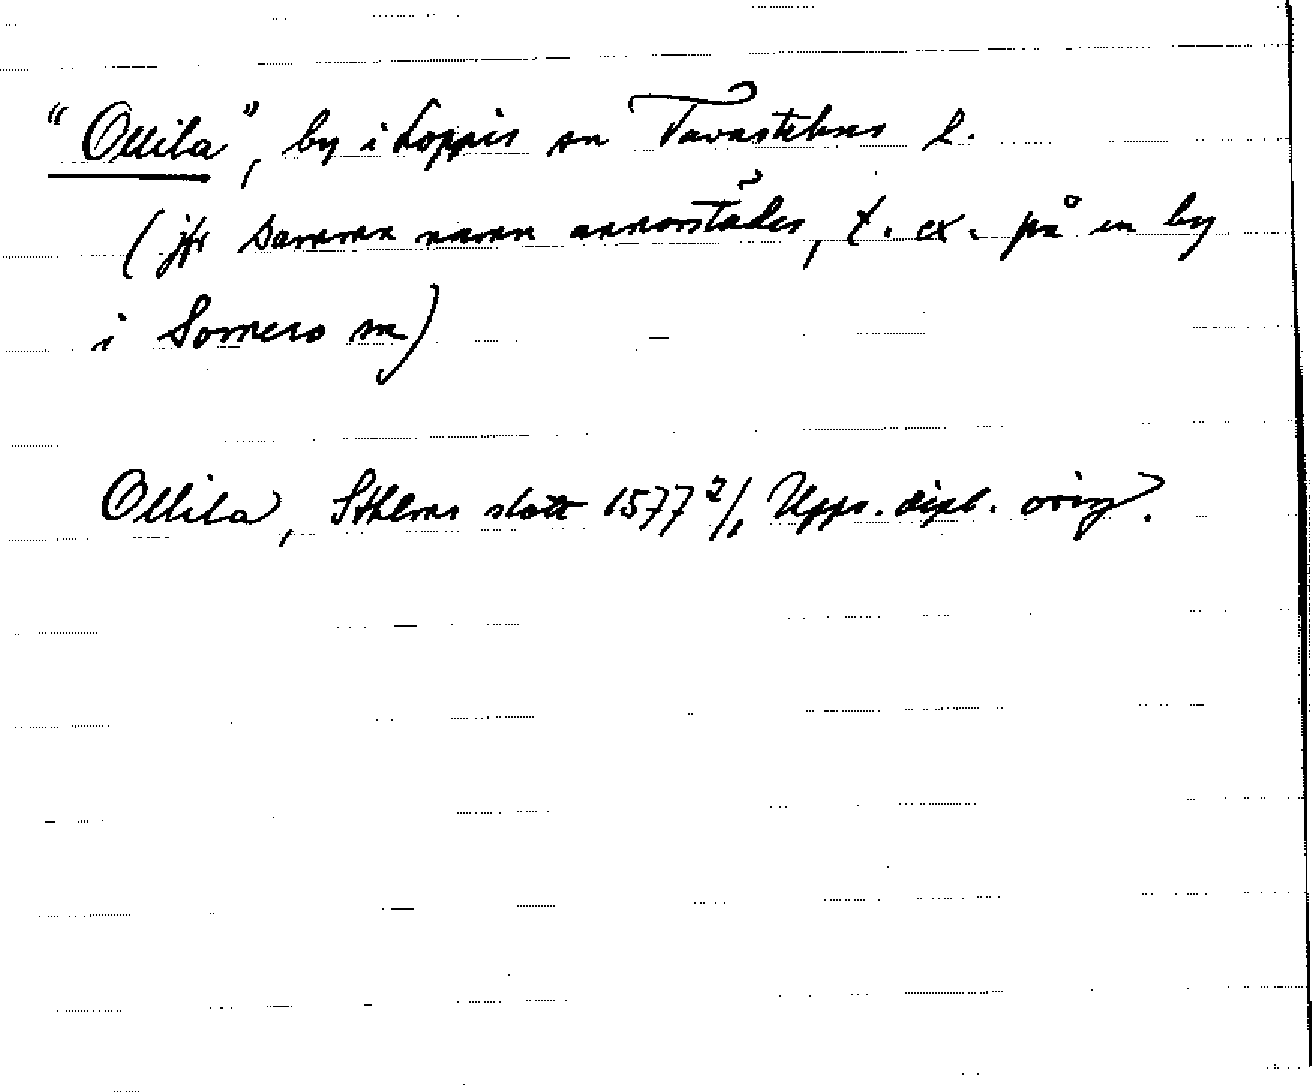 "Ollila", by i Loppis sn Tavastehus L.
(jfr samma namn annorstädes, t. ex. på en by
i Somero sn)
Ollila, Sthlms slott 1577 2/1, Upps. dipl. orig.